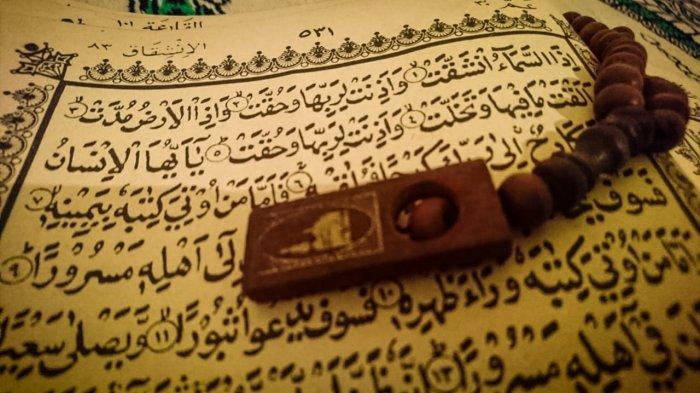 القارعة ١٠١
عم ٣٠
الانشقاق ٨٣
٥٣١
إِذَا السَّمَآءُ انْشَقَّتْ ۝١ وَاَذِنَتْ لِرَبِّهَا وَحُقَّتْ ۝٢ وَاِذَا الْاَرْضُ مُدَّتْ ۝٣
وَاَلْقَتْ مَا فِيْهَا وَتَخَلَّتْ ۝٤ وَاَذِنَتْ لِرَبِّهَا وَحُقَّتْ ۝٥ يٰٓاَيُّهَا الْاِنْسَانُ
كَادِحٌ اِلٰى رَبِّكَ كَدْحًا فَمُلٰقِيْهِ ۝٦ فَاَمَّا مَنْ اُوْتِيَ كِتٰبَهٗ بِيَمِيْنِهٖ ۝٧
فَسَوْفَ اِلٰٓى اَهْلِهٖ مَسْرُوْرًا ۝٩
وَاَمَّا مَنْ اُوْتِيَ كِتٰبَهٗ وَرَآءَ ظَهْرِهٖ ۝١٠ فَسَوْفَ يَدْعُوْا ثُبُوْرًا ۝١١ وَيَصْلٰى سَعِيْرًا
فِيْٓ اَهْلِهٖ مَسْرُوْرًا ۝١٣ اِنَّهٗ ظَنَّ